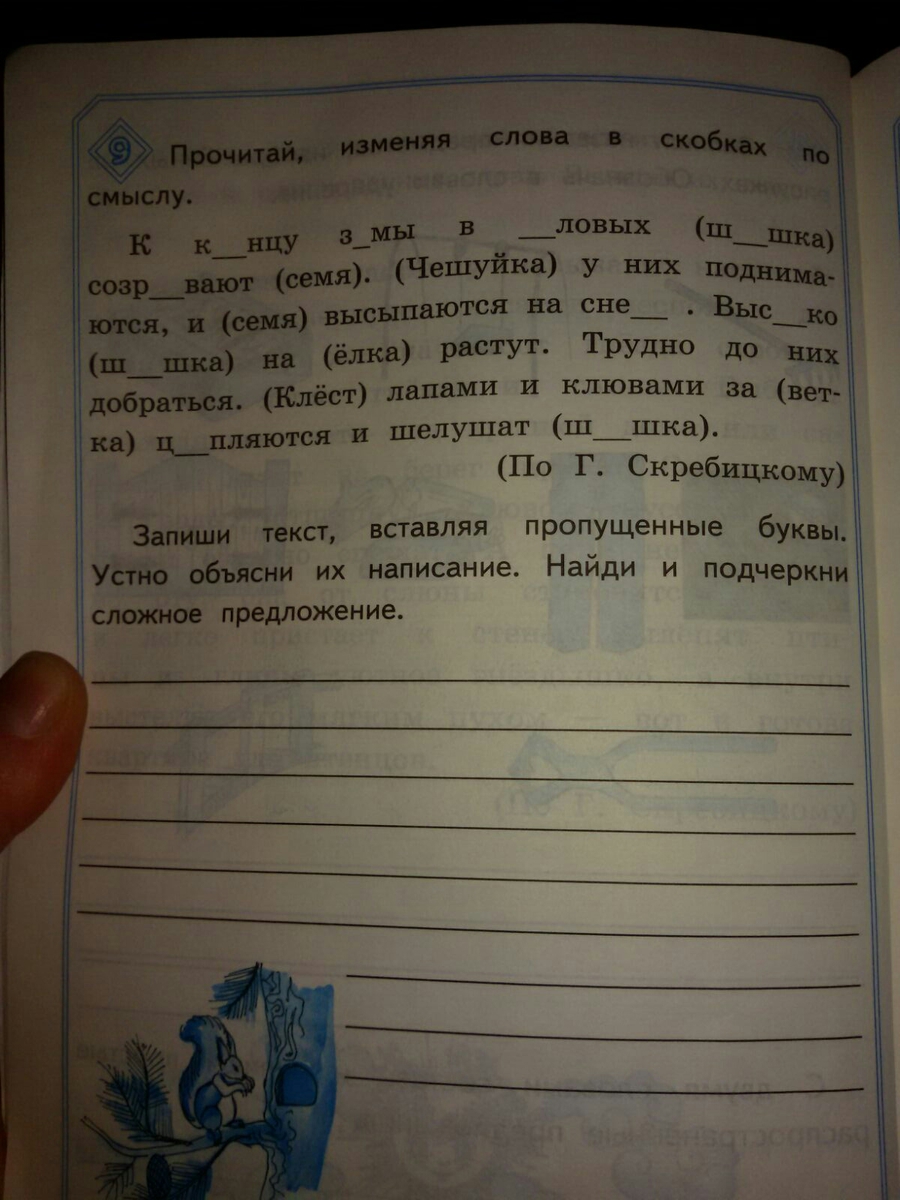 9 Прочитай, изменяя слова в скобках по
смыслу.
К к__нцу з_мы в __ловых (ш__шка)
созр__вают (семя). (Чешуйка) у них поднима-
ются, и (семя) высыпаются на сне__ . Выс__ко
(ш__шка) на (ёлка) растут. Трудно до них
добраться. (Клёст) лапами и клювами за (вет-
ка) ц__пляются и шелушат (ш__шка).
(По Г. Скребицкому)
Запиши текст, вставляя пропущенные буквы.
Устно объясни их написание. Найди и подчеркни
сложное предложение.